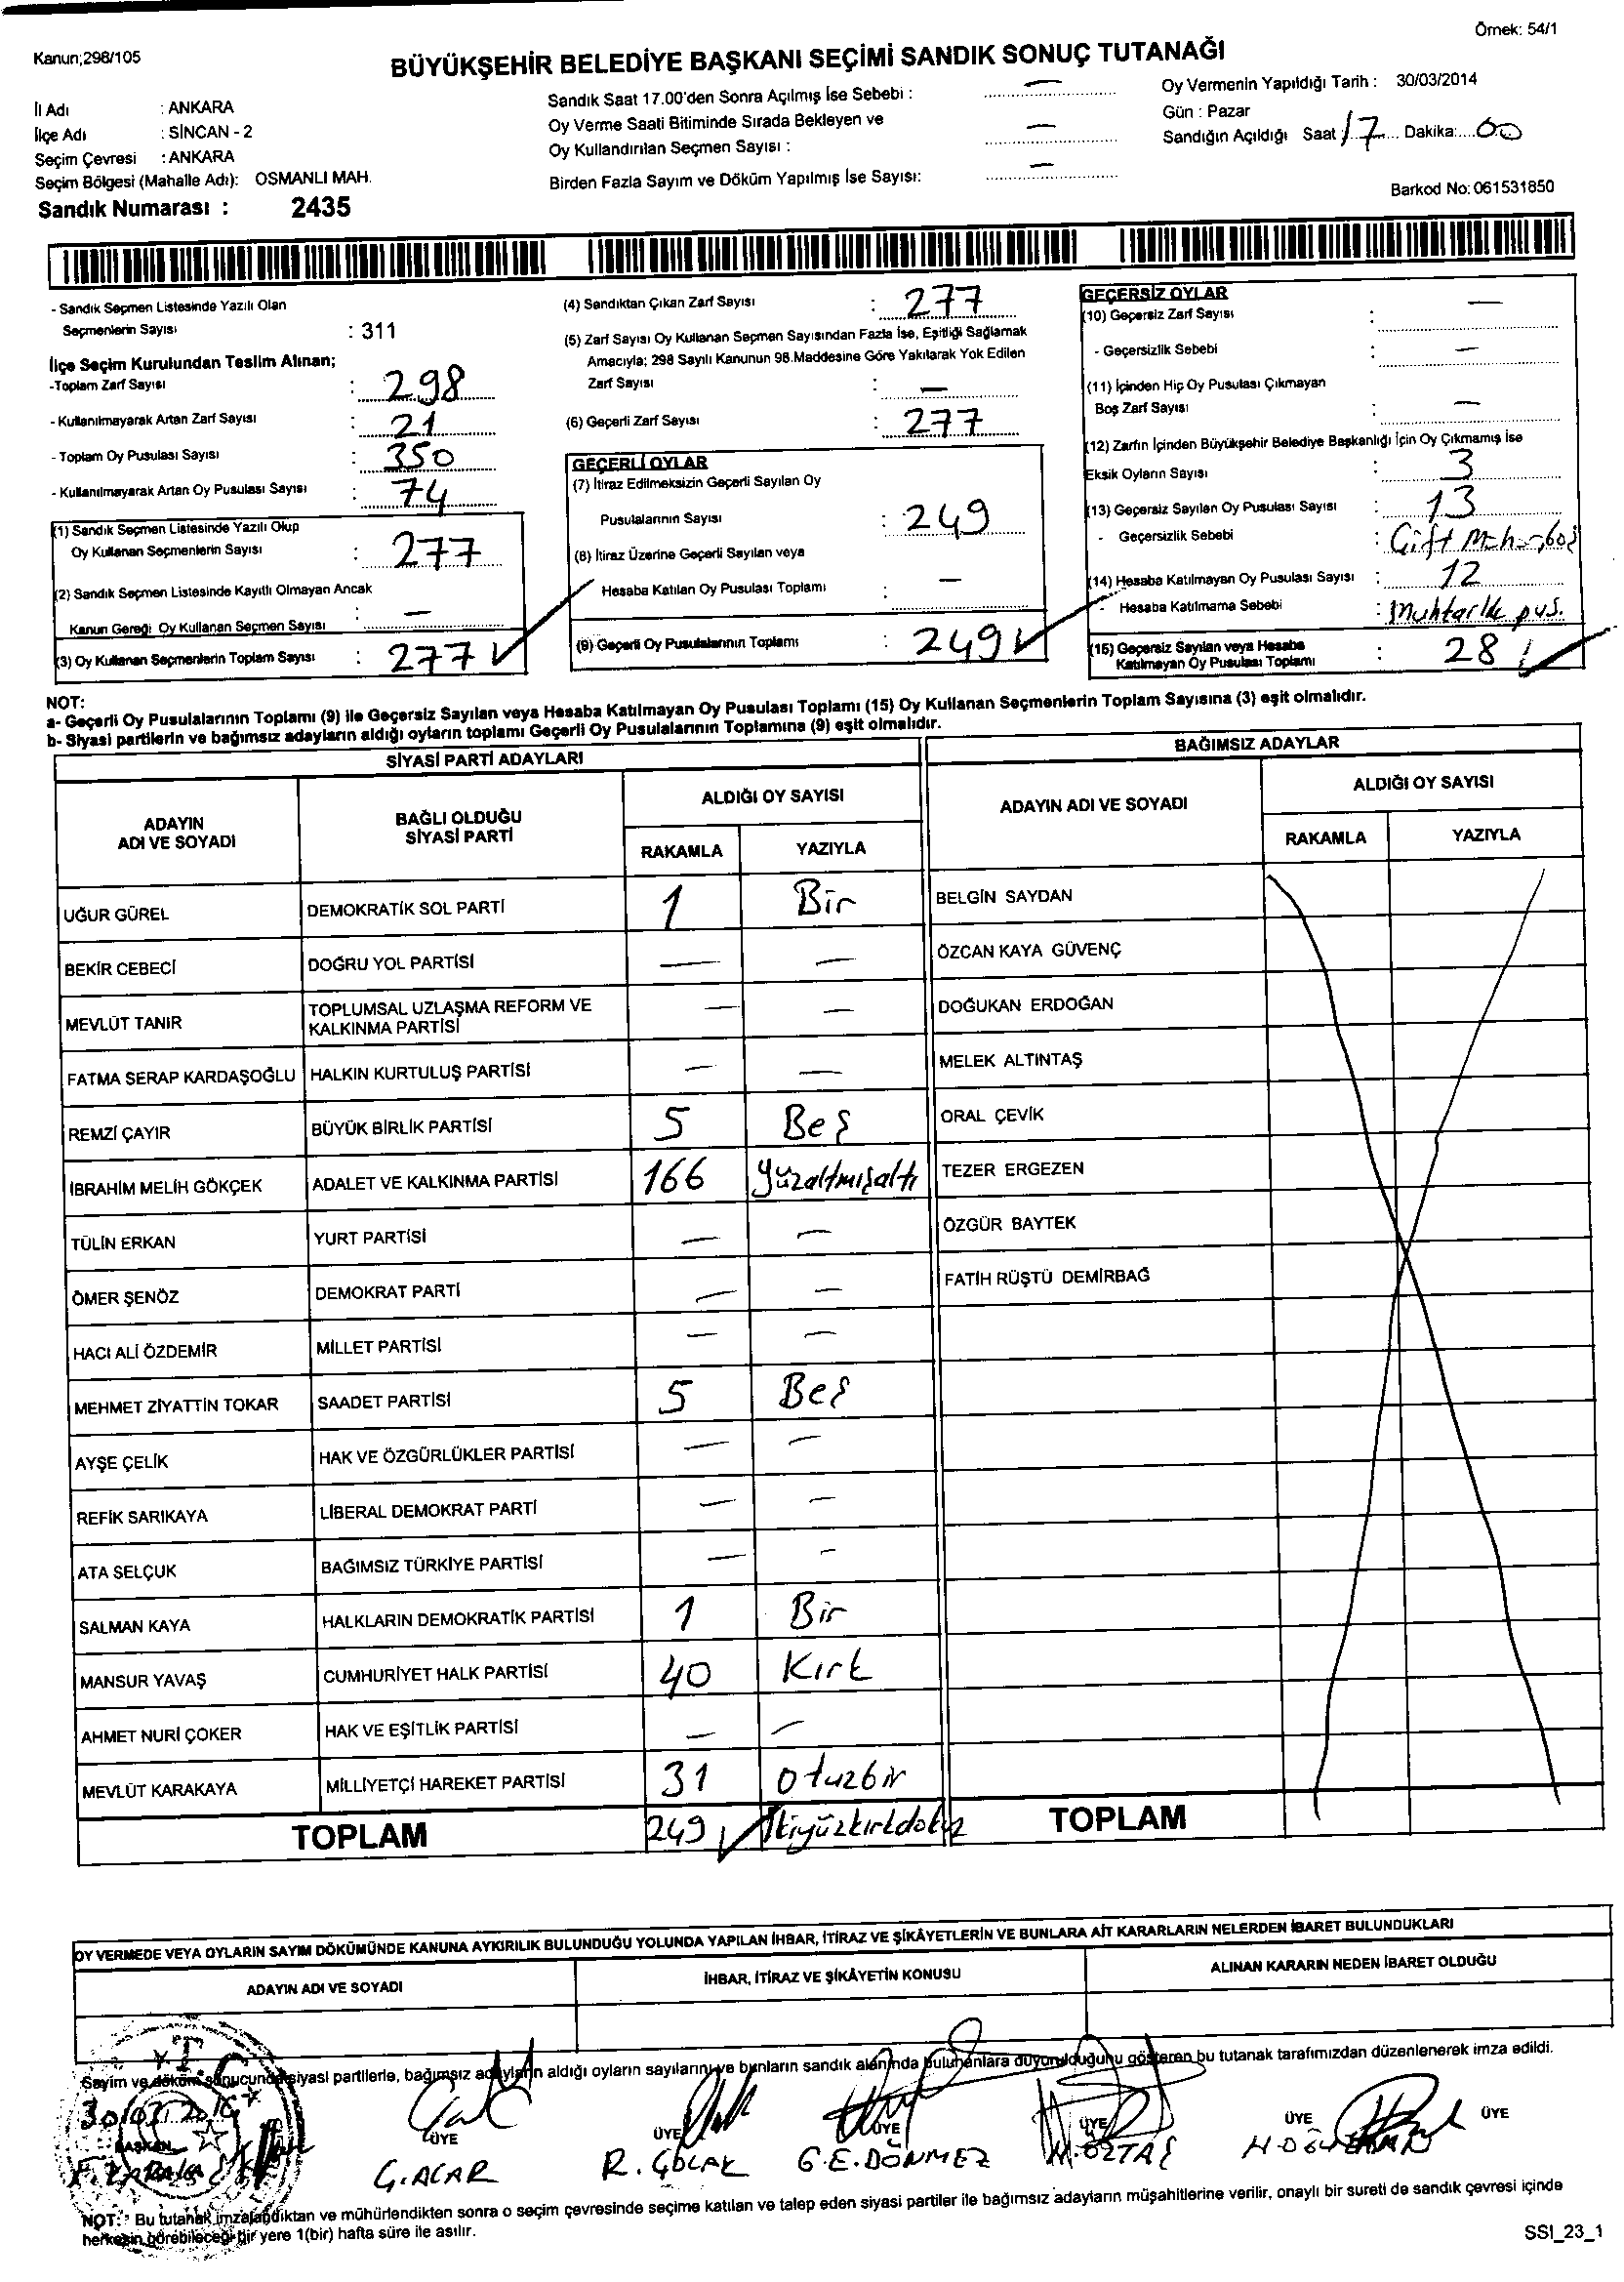 Örnek: 54/1
Kanun;298/105
BÜYÜKŞEHİR BELEDİYE BAŞKANI SEÇİMİ SANDIK SONUÇ TUTANAĞI
İl Adı : ANKARA
İlçe Adı : SİNCAN - 2
Seçim Çevresi : ANKARA
Seçim Bölgesi (Mahalle Adı): OSMANLI MAH.
Sandık Numarası : 2435
Sandık Saat 17.00'den Sonra Açılmış İse Sebebi : —
Oy Verme Saati Bitiminde Sırada Bekleyen ve
Oy Kullandırılan Seçmen Sayısı : —
Birden Fazla Sayım ve Döküm Yapılmış İse Sayısı: —
Oy Vermenin Yapıldığı Tarih : 30/03/2014
Gün : Pazar
Sandığın Açıldığı Saat 17 Dakika:....00
Barkod No: 061531850
- Sandık Seçmen Listesinde Yazılı Olan
Seçmenlerin Sayısı : 311
İlçe Seçim Kurulundan Teslim Alınan;
-Toplam Zarf Sayısı : 298
- Kullanılmayarak Artan Zarf Sayısı : 21
- Toplam Oy Pusulası Sayısı : 350
- Kullanılmayarak Artan Oy Pusulası Sayısı : 74
(1) Sandık Seçmen Listesinde Yazılı Olup
Oy Kullanan Seçmenlerin Sayısı : 277
(2) Sandık Seçmen Listesinde Kayıtlı Olmayan Ancak
Kanun Gereği Oy Kullanan Seçmen Sayısı : —
(3) Oy Kullanan Seçmenlerin Toplam Sayısı : 277
(4) Sandıktan Çıkan Zarf Sayısı : 277
(5) Zarf Sayısı Oy Kullanan Seçmen Sayısından Fazla İse, Eşitliği Sağlamak
Amacıyla; 298 Sayılı Kanunun 98.Maddesine Göre Yakılarak Yok Edilen
Zarf Sayısı : —
(6) Geçerli Zarf Sayısı : 277
GEÇERLİ OYLAR
(7) İtiraz Edilmeksizin Geçerli Sayılan Oy
Pusulalarının Sayısı : 249
(8) İtiraz Üzerine Geçerli Sayılan veya
Hesaba Katılan Oy Pusulası Toplamı : —
(9) Geçerli Oy Pusulalarının Toplamı : 249
GEÇERSİZ OYLAR
(10) Geçersiz Zarf Sayısı : —
- Geçersizlik Sebebi : —
(11) İçinden Hiç Oy Pusulası Çıkmayan
Boş Zarf Sayısı : —
(12) Zarfın İçinden Büyükşehir Belediye Başkanlığı İçin Oy Çıkmamış İse
Eksik Oyların Sayısı : 3
(13) Geçersiz Sayılan Oy Pusulası Sayısı : 13
- Geçersizlik Sebebi : Çift Mühür,boş
(14) Hesaba Katılmayan Oy Pusulası Sayısı : 12
- Hesaba Katılmama Sebebi : Muhtarlık pus.
(15) Geçersiz Sayılan veya Hesaba
Katılmayan Oy Pusulası Toplamı : 28
NOT:
a- Geçerli Oy Pusulalarının Toplamı (9) ile Geçersiz Sayılan veya Hesaba Katılmayan Oy Pusulası Toplamı (15) Oy Kullanan Seçmenlerin Toplam Sayısına (3) eşit olmalıdır.
b- Siyasi partilerin ve bağımsız adayların aldığı oyların toplamı Geçerli Oy Pusulalarının Toplamına (9) eşit olmalıdır.
SİYASİ PARTİ ADAYLARI
ADAYIN ADI VE SOYADI BAĞLI OLDUĞU SİYASİ PARTİ ALDIĞI OY SAYISI
RAKAMLA YAZIYLA
UĞUR GÜREL DEMOKRATİK SOL PARTİ 1 Bir
BEKİR CEBECİ DOĞRU YOL PARTİSİ — —
MEVLÜT TANIR TOPLUMSAL UZLAŞMA REFORM VE KALKINMA PARTİSİ — —
FATMA SERAP KARDAŞOĞLU HALKIN KURTULUŞ PARTİSİ — —
REMZİ ÇAYIR BÜYÜK BİRLİK PARTİSİ 5 Beş
İBRAHİM MELİH GÖKÇEK ADALET VE KALKINMA PARTİSİ 166 yüzaltmışaltı
TÜLİN ERKAN YURT PARTİSİ — —
ÖMER ŞENÖZ DEMOKRAT PARTİ — —
HACI ALİ ÖZDEMİR MİLLET PARTİSİ — —
MEHMET ZİYATTİN TOKAR SAADET PARTİSİ 5 Beş
AYŞE ÇELİK HAK VE ÖZGÜRLÜKLER PARTİSİ — —
REFİK SARIKAYA LİBERAL DEMOKRAT PARTİ — —
ATA SELÇUK BAĞIMSIZ TÜRKİYE PARTİSİ — —
SALMAN KAYA HALKLARIN DEMOKRATİK PARTİSİ 1 Bir
MANSUR YAVAŞ CUMHURİYET HALK PARTİSİ 40 Kırk
AHMET NURİ ÇOKER HAK VE EŞİTLİK PARTİSİ — —
MEVLÜT KARAKAYA MİLLİYETÇİ HAREKET PARTİSİ 31 otuzbir
TOPLAM 249 İkiyüzkırkdokuz
BAĞIMSIZ ADAYLAR
ADAYIN ADI VE SOYADI ALDIĞI OY SAYISI
RAKAMLA YAZIYLA
BELGİN SAYDAN
ÖZCAN KAYA GÜVENÇ
DOĞUKAN ERDOĞAN
MELEK ALTINTAŞ
ORAL ÇEVİK
TEZER ERGEZEN
ÖZGÜR BAYTEK
FATİH RÜŞTÜ DEMİRBAĞ
TOPLAM
OY VERMEDE VEYA OYLARIN SAYIM DÖKÜMÜNDE KANUNA AYKIRILIK BULUNDUĞU YOLUNDA YAPILAN İHBAR, İTİRAZ VE ŞİKÂYETLERİN VE BUNLARA AİT KARARLARIN NELERDEN İBARET BULUNDUKLARI
ADAYIN ADI VE SOYADI İHBAR, İTİRAZ VE ŞİKÂYETİN KONUSU ALINAN KARARIN NEDEN İBARET OLDUĞU
Sayım ve döküm sonucunda siyasi partilerle, bağımsız adayların aldığı oyların sayılarını ve bunların sandık alanında bulunanlara duyurulduğunu gösteren bu tutanak tarafımızdan düzenlenerek imza edildi.
T.C
BAŞKAN ÜYE ÜYE ÜYE ÜYE ÜYE ÜYE
Ç.ACAR R.ÇOLAK G.E.DÖNMEZ M.ÖZTAŞ
NOT: Bu tutanak imzalandıktan ve mühürlendikten sonra o seçim çevresinde seçime katılan ve talep eden siyasi partiler ile bağımsız adayların müşahitlerine verilir, onaylı bir sureti de sandık çevresi içinde
herkesin görebileceği bir yere 1(bir) hafta süre ile asılır.
SSI_23_1